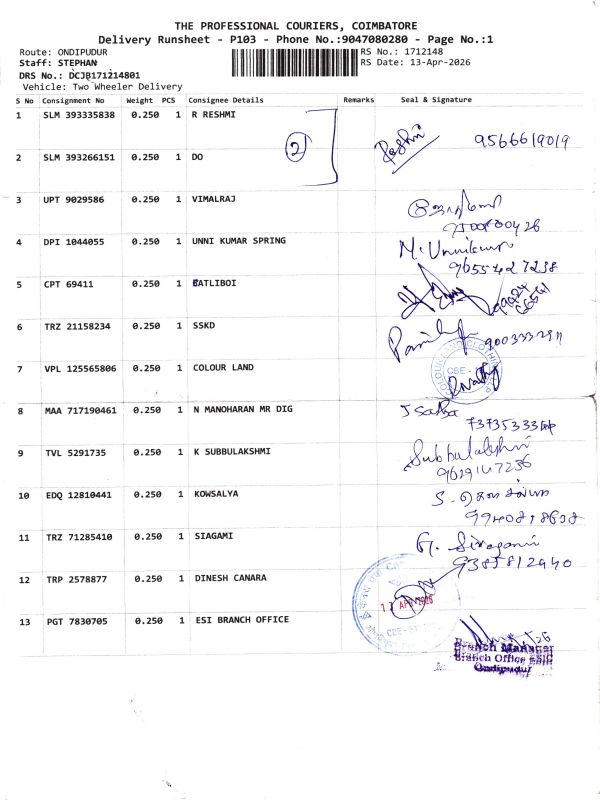 THE PROFESSIONAL COURIERS, COIMBATORE
Delivery Runsheet - P103 - Phone No.:9047080280 - Page No.:1
Route: ONDIPUDUR
RS No.: 1712148
Staff: STEPHAN
RS Date: 13-Apr-2026
DRS No.: DCJB171214801
Vehicle: Two Wheeler Delivery
S No Consignment No Weight PCS Consignee Details Remarks Seal & Signature
1 SLM 393335838 0.250 1 R RESHMI
2 Reshmi 9566619019
2 SLM 393266151 0.250 1 DO
3 UPT 9029586 0.250 1 VIMALRAJ
4 DPI 1044055 0.250 1 UNNI KUMAR SPRING M. Unnikumar
9655427238
5 CPT 69411 0.250 1 BATLIBOI
6 TRZ 21158234 0.250 1 SSKD
7 VPL 125565806 0.250 1 COLOUR LAND CBE
8 MAA 717190461 0.250 1 N MANOHARAN MR DIG
9 TVL 5291735 0.250 1 K SUBBULAKSHMI Subbulakshmi
9629147236
10 EDQ 12810441 0.250 1 KOWSALYA
11 TRZ 71285410 0.250 1 SIAGAMI
9385812940
12 TRP 2578877 0.250 1 DINESH CANARA
13 PGT 7830705 0.250 1 ESI BRANCH OFFICE
Branch Manager
Branch Office ESIC
Ondipudur